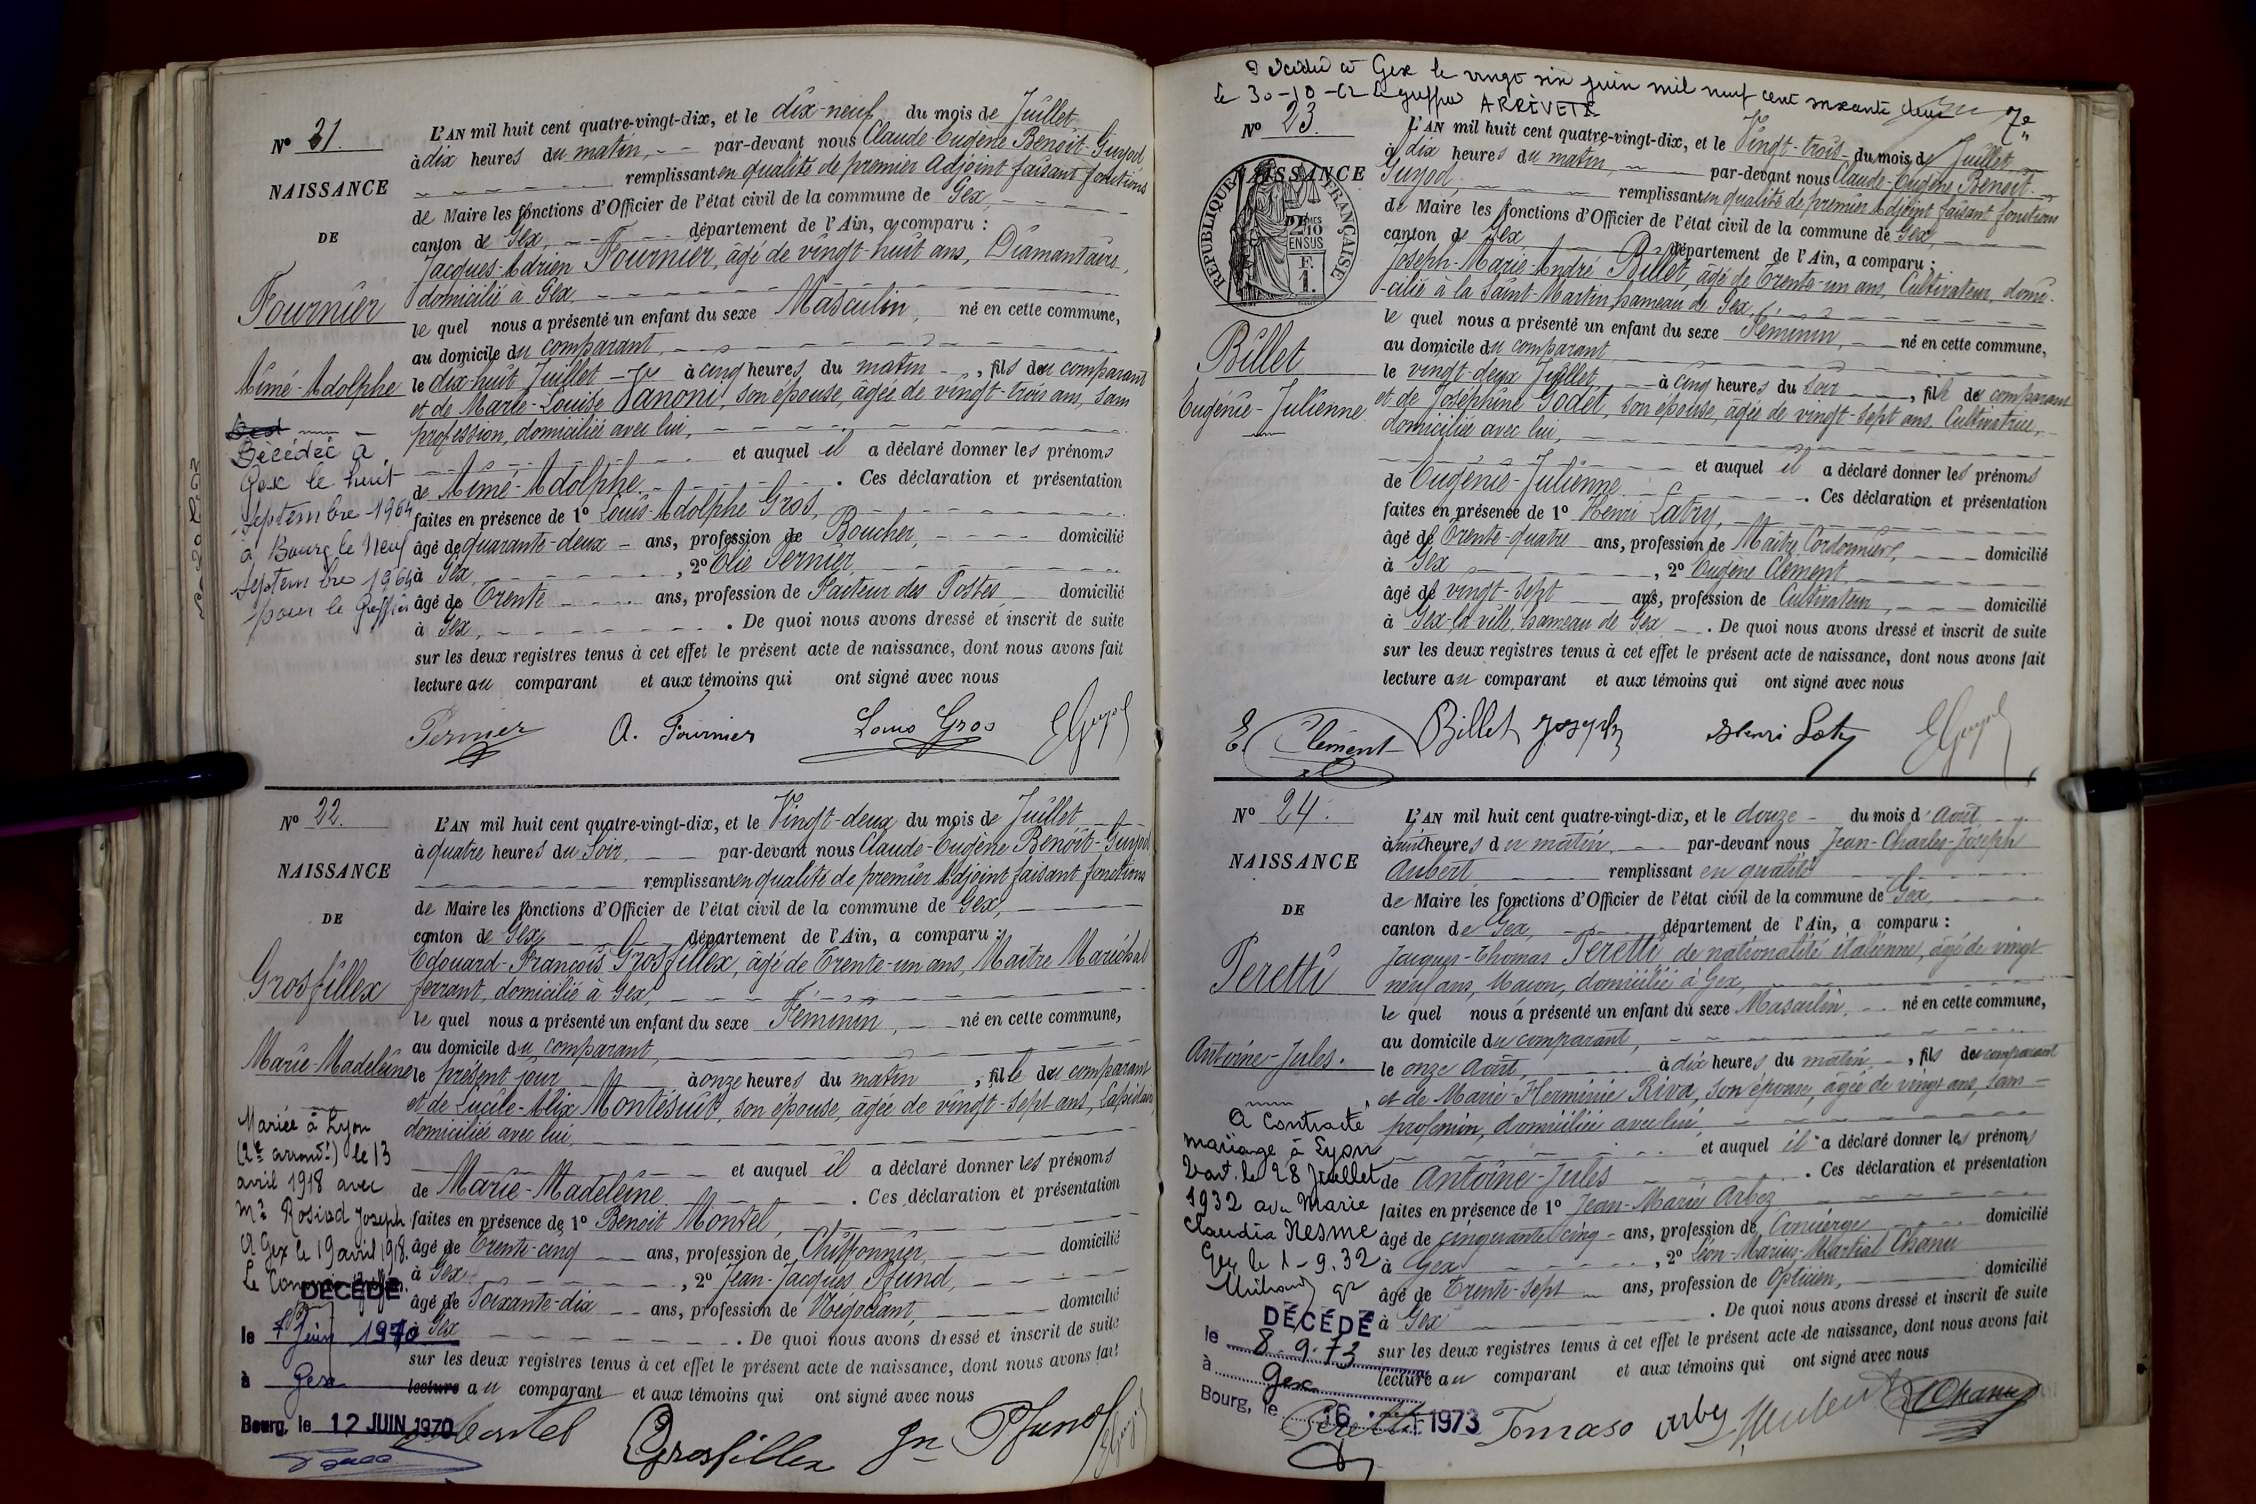 N° 21.
NAISSANCE
DE
Fournier
Aimé-Adolphe
Décédé à
Gex le huit
septembre 1964
à Bourg le Neuf
septembre 1964
pour le Greffier
L'AN mil huit cent quatre-vingt-dix, et le dix-neuf du mois de Juillet
à dix heures du matin, par-devant nous Claude-Eugène Benoit-Guyod
remplissant en qualité de premier Adjoint faisant fonctions
de Maire les fonctions d'Officier de l'état civil de la commune de Gex,
canton de Gex, département de l'Ain, a comparu :
Jacques-Adrien Fournier, âgé de vingt-huit ans, Diamantaire,
domicilié à Gex,
le quel nous a présenté un enfant du sexe Masculin, né en cette commune,
au domicile du comparant,
le dix-huit Juillet à cinq heures du matin, fils du comparant
et de Marie-Louise Vanoni, son épouse, âgée de vingt-trois ans, sans
profession, domiciliée avec lui,
et auquel il a déclaré donner les prénoms
de Aimé-Adolphe. Ces déclaration et présentation
faites en présence de 1° Louis-Adolphe Gros,
âgé de quarante-deux ans, profession de Boucher, domicilié
à Gex, 2° Elie Pernier,
âgé de Trente ans, profession de Facteur des Postes domicilié
à Gex, . De quoi nous avons dressé et inscrit de suite
sur les deux registres tenus à cet effet le présent acte de naissance, dont nous avons fait
lecture au comparant et aux témoins qui ont signé avec nous
Pernier A. Fournier Louis Gros EGuyod
N° 22.
NAISSANCE
DE
Grosfillex
Marie-Madeleine
Mariée à Lyon
(2e arrondt) le 13
avril 1918 avec
Mr Rosiod Joseph
A Gex le 19 avril 1918.
DÉCÉDÉ
le Juin 1970
à Gex
Bourg, le 12 JUIN 1970
L'AN mil huit cent quatre-vingt-dix, et le Vingt-deux du mois de Juillet
à quatre heures du Soir, par-devant nous Claude-Eugène Benoit-Guyod
remplissant en qualité de premier Adjoint faisant fonctions
de Maire les fonctions d'Officier de l'état civil de la commune de Gex,
canton de Gex, département de l'Ain, a comparu :
Edouard-François Grosfillex, âgé de Trente-un ans, Maître Maréchal
ferrant, domicilié à Gex,
le quel nous a présenté un enfant du sexe Féminin, né en cette commune,
au domicile du comparant,
le présent jour à onze heures du matin, fille du comparant
et de Lucile-Alix Montésuit, son épouse, âgée de vingt-sept ans, Lapidaire,
domiciliée avec lui,
et auquel il a déclaré donner les prénoms
de Marie-Madeleine. Ces déclaration et présentation
faites en présence de 1° Benoit Montel,
âgé de Trente-cinq ans, profession de Chiffonnier, domicilié
à Gex, 2° Jean-Jacques Pfund,
âgé de Soixante-dix ans, profession de Négociant, domicilié
à Gex . De quoi nous avons dressé et inscrit de suite
sur les deux registres tenus à cet effet le présent acte de naissance, dont nous avons fait
lecture au comparant et aux témoins qui ont signé avec nous
Montel Grosfillex Jn Pfund
Décédée à Gex le vingt six juin mil neuf cent soixante deux
le 30-10-62 le greffier ARRÊVETE
7e
N° 23.
NAISSANCE
RÉPUBLIQUE FRANÇAISE
2 DIXMES 10
EN SUS
F.
1.
Billet
Eugénie-Julienne
L'AN mil huit cent quatre-vingt-dix, et le Vingt-trois du mois de Juillet
à dix heures du matin, par-devant nous Claude-Eugène Benoit-
Guyod, remplissant en qualité de premier Adjoint faisant fonctions
de Maire les fonctions d'Officier de l'état civil de la commune de Gex,
canton de Gex, département de l'Ain, a comparu :
Joseph-Marie-André Billet, âgé de Trente-un ans, Cultivateur, domi-
-cilié à la Saint-Martin hameau de Gex,
le quel nous a présenté un enfant du sexe Féminin, né en cette commune,
au domicile du comparant
le vingt-deux Juillet, à cinq heures du soir, fille du comparant
et de Joséphine Godet, son épouse, âgée de vingt-sept ans, Cultivatrice,
domiciliée avec lui,
et auquel il a déclaré donner les prénoms
de Eugénie-Julienne. Ces déclaration et présentation
faites en présence de 1° Henri Latry,
âgé de Trente-quatre ans, profession de Maître Cordonnier, domicilié
à Gex, 2° Eugène Clément,
âgé de vingt-sept ans, profession de Cultivateur, domicilié
à Gex-la-ville, hameau de Gex. De quoi nous avons dressé et inscrit de suite
sur les deux registres tenus à cet effet le présent acte de naissance, dont nous avons fait
lecture au comparant et aux témoins qui ont signé avec nous
E Clément Billet Joseph Henri Laty EGuyod
N° 24.
NAISSANCE
DE
Peretti
Antoine-Jules.
A Contracté
mariage à Lyon
le 28 Juillet
1932 avec Marie
Claudia Nesme
Gex le 1-9.32
DÉCÉDÉ
le 8.9.73
à Gex
Bourg, le 16 1973
L'AN mil huit cent quatre-vingt-dix, et le douze du mois d'Août
à huit heures du matin, par-devant nous Jean-Charles-Joseph
Aubert remplissant en qualité
de Maire les fonctions d'Officier de l'état civil de la commune de Gex
canton de Gex, département de l'Ain, a comparu :
Jacques-Thomas Peretti de nationalité italienne, âgé de vingt
neuf ans, Maçon, domicilié à Gex,
le quel nous a présenté un enfant du sexe Masculin, né en cette commune,
au domicile du comparant,
le onze Août, à dix heures du matin, fils du comparant
et de Marie-Herminie Riva, son épouse, âgée de vingt ans, sans
profession, domiciliée avec lui,
et auquel il a déclaré donner les prénoms
de Antoine-Jules. Ces déclaration et présentation
faites en présence de 1° Jean-Marie Arbez
âgé de cinquante-cinq ans, profession de Concierge domicilié
à Gex, 2° Léon-Marius-Martial Chanu
âgé de Trente-sept ans, profession de Opticien, domicilié
à Gex . De quoi nous avons dressé et inscrit de suite
sur les deux registres tenus à cet effet le présent acte de naissance, dont nous avons fait
lecture au comparant et aux témoins qui ont signé avec nous
Peretti Tomaso Arbez Aubert Chanu